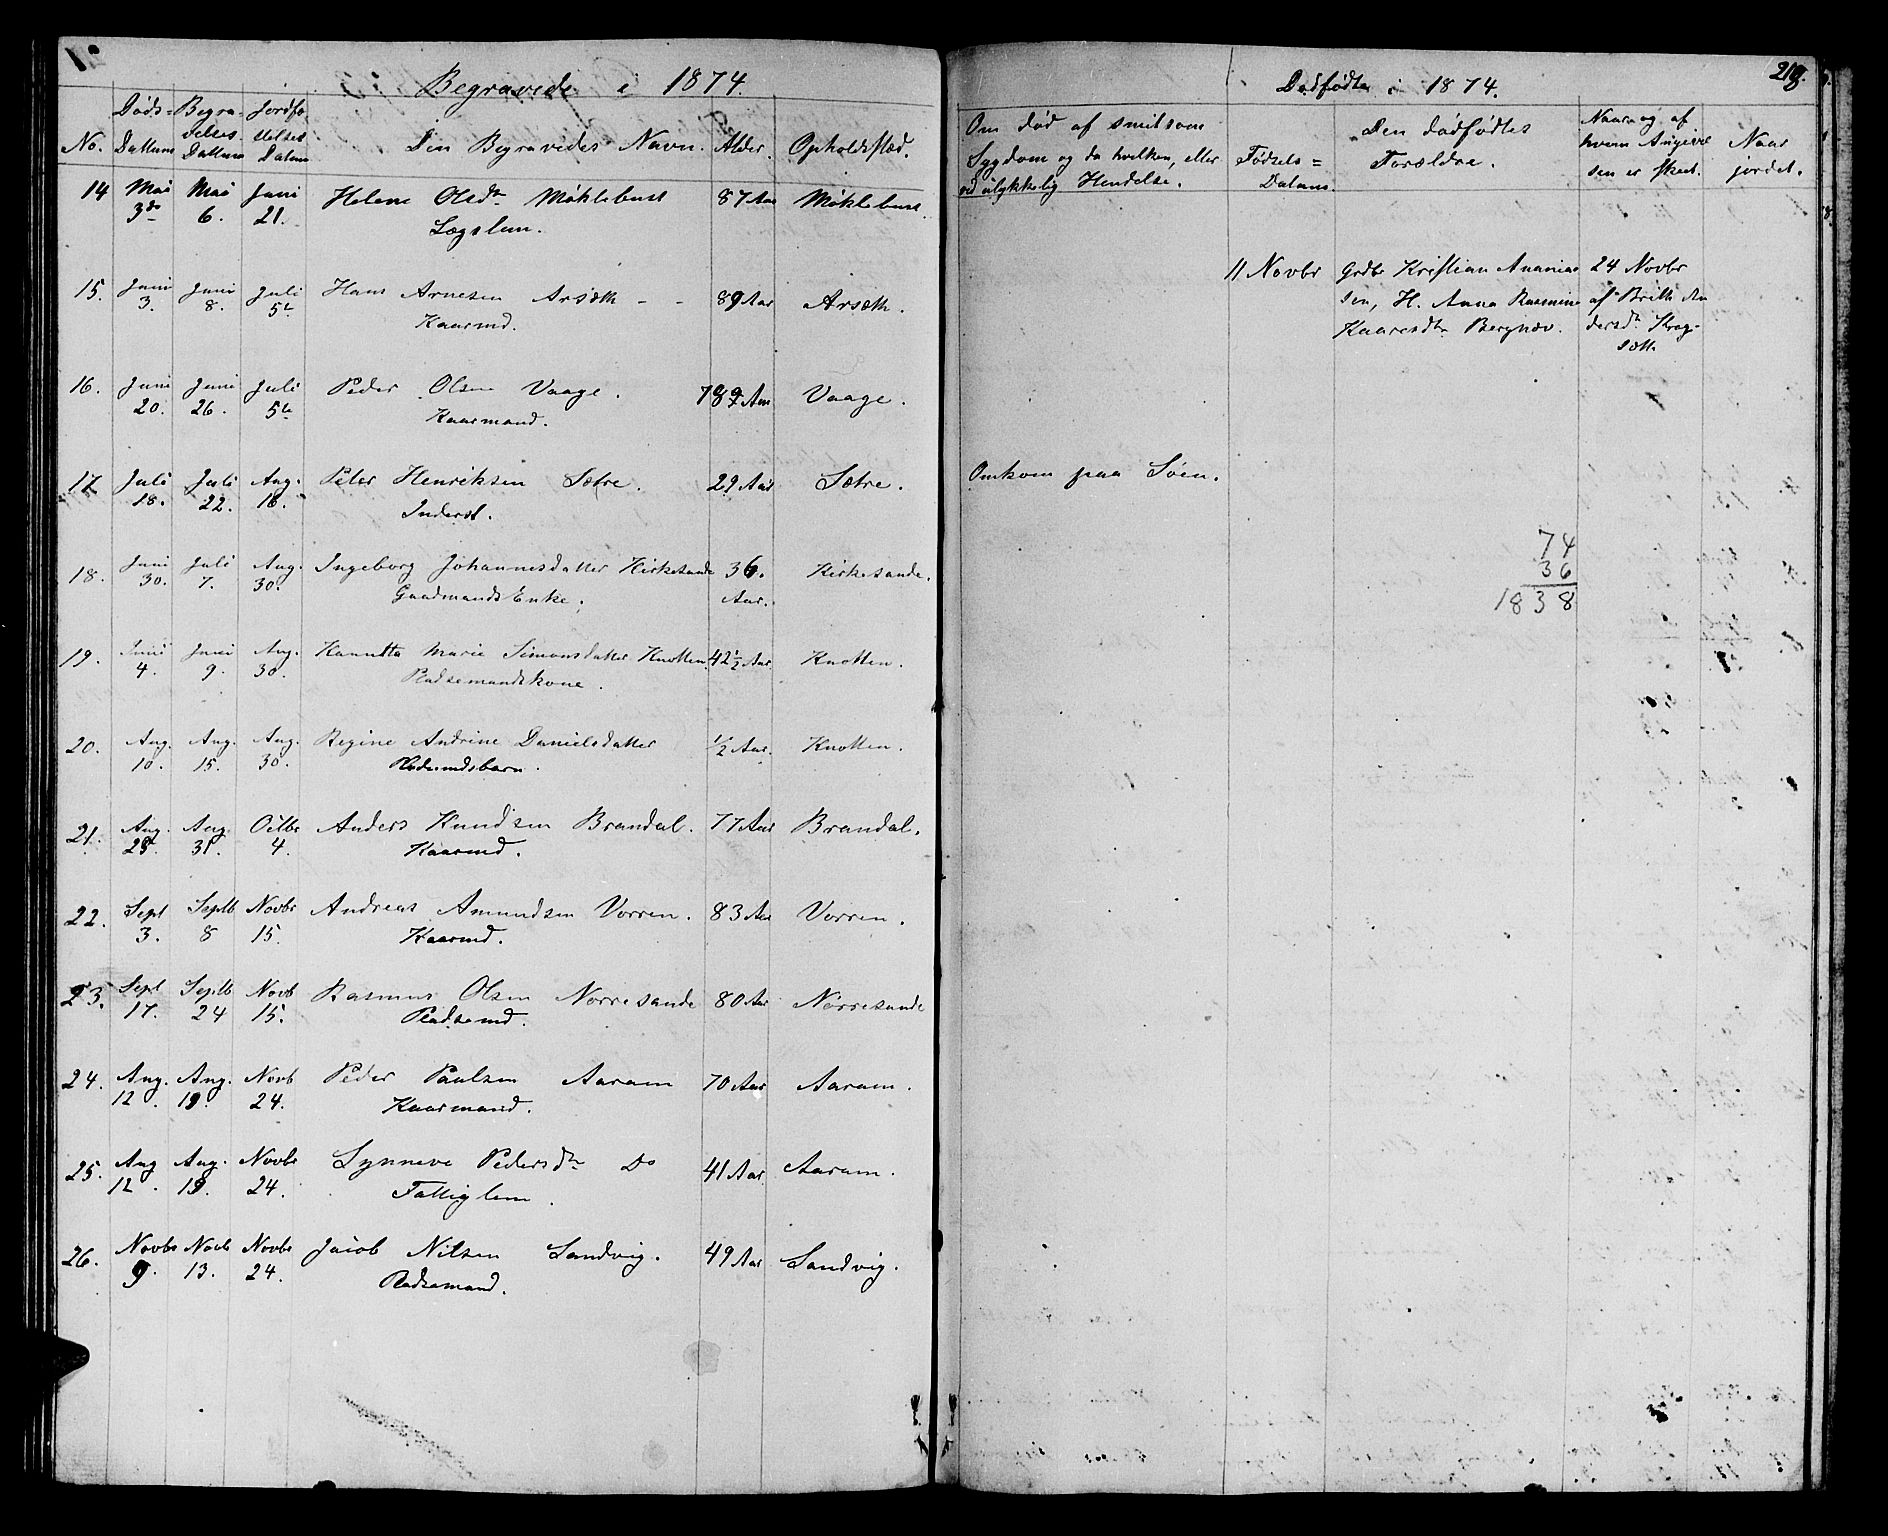 Begravede i 1874.
No. Døds-Datum Begravelses Datum Jordfæstelses Datum Den Begravedes Navn. Alder. Opholdssted.
14 Mai 3de Mai 6. Juni 21. Helene Olsdr Møklebust 87 Aar Møklebust.
Lægslem.
15. Juni 3. Juni 8. Juli 5te Hans Arnesen Arsæth - - 89 Aar Arsæth.
Kaarmd.
16. Juni 20. Juni 26. Juli 5te Peder Olsen Vaage. Aar Vaage.
Kaarmand.
17 Juli 18. Juli 22. Aug. 16. Peter Henriksen Sætre. 29 Aar Sætre.
Inderst.
18. Juni 30. Juli 7. Aug. 30. Ingeborg Johannesdatter Kirkesande 36. Aar. Kirkesande.
Gaadmands Enke.
19. Juni 4. Juni 9. Aug. 30. Marie Simonsdatter Knotten. 42½ Aar Knotten.
Pladsemandskone.
20. Aug. 10. Aug. 15. Aug. 30. Regine Andrine Danielsdatter ½ Aar. Knotten.
Pladsmdsbarn.
21. Aug. Aug. 31. Octbr 4. Anders Knudsen Brandal. 77 Aar Brandal.
Kaarmd.
22. Sept 3. Septb 8 Novbr 15. Andreas Amundsen Vorren. 83 Aar Vorren.
Kaarmd.
23. Sept 17. Septb 24 Novb 15. Rasmus Olsen Nørresande 80 Aar Nørresande
Pladsemd.
24. Aug. 12. Aug. 19. Novb 24. Peder Paulsen Aaram 70 Aar Aaram.
Kaarmand.
25. Aug 12. Aug. 19. Novbr 24. Synneve Pedersdr Do 41 Aar. Aaram.
Fattiglem.
26. Novbr 9. Novb 13. Novbr 24. Jacob Nilsen Sandvig. 49 Aar Sandvig.
Pladsemand.
Dødfødte i 1874.
219.
Om død af smitsom
Sygdom og da hvilken, eller
ved ulykkelig Hendelse.
Fødsels=
Datum.
Den dødfødtes
Forældre.
Naar og af
hvem Angivel
sen er skeet.
Naar
jordet.
11 Novbr
Grdbr Kristian Ananias
sen, H. Anna Rasmine
Kaaresdtr Bergnæv.
24 Novbr
af Britte An
dersdr Krog-
sæth
Omkom paa Søen.
74
36
1838